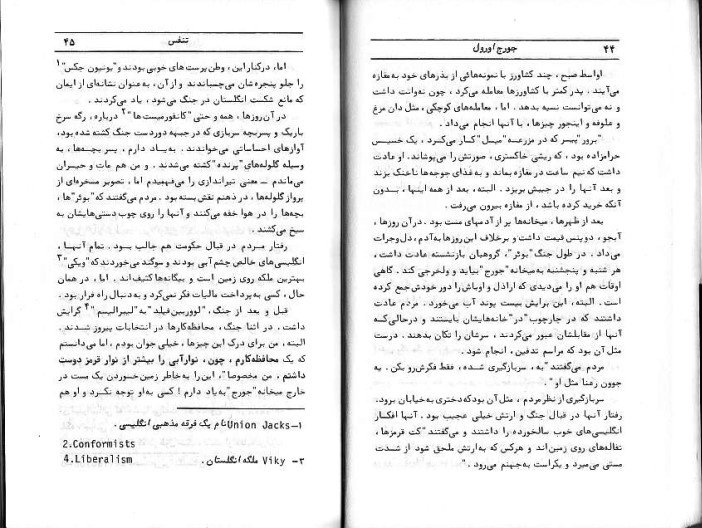 ۴۴
جورج اورول
اواسط صبح ، چند کشاورز با نمونه‌هائی از بذرهای خود به‌مغازه
می‌آیند . پدر کمتر با کشاورزها معامله می‌کرد ، چون نه‌وانت داشت
و نه می‌توانست نسیه بدهد . اما ، معامله‌های کوچکی ، مثل دان مرغ
و علوفه و اینجور چیزها ، با آنها انجام می‌داد .
"برور" پسر که در مزرعه "میل" کار می‌کرد ، یک خسیس
حرامزاده بود ، که ریشی خاکستری ، صورتش را می‌پوشاند . او عادت
داشت که نیم ساعت در مغازه بماند و به غذای جوجه‌ها ناخنک بزند
و بعد آنها را در جیبش بریزد . البته ، بعد از همه اینها ، بدون
آنکه خرید کرده باشد ، از مغازه بیرون می‌رفت .
بعد از ظهرها ، میخانه‌ها پر از آدمهای مست بود . در آن روزها ،
آبجو ، دوپنس قیمت داشت و برخلاف این روزها به‌آدم ، دل‌وجرات
می‌داد . در طول جنگ "بوئر" ، گروهبان بازنشسته عادت داشت ،
هر شنبه و پنجشنبه به‌میخانه "جورج" بیاید و ولخرجی کند . گاهی
اوقات هم او را می‌دیدی که اراذل و اوباش را دور خودش جمع کرده
است . البته ، این برایش بیست پوند آب می‌خورد . مردم عادت
داشتند که در چارچوب در خانه‌هایشان بایستند و درحالی‌که
آنها از مقابلشان عبور می‌کردند ، سرشان را تکان بدهند . درست
مثل آن بود که مراسم تدفین ، انجام شود .
مردم می‌گفتند "به ، سربازگیری شده ، فقط فکرش رو بکن . یه
جوون رعنا مثل او" .
سربازگیری از نظر مردم ، مثل آن بود که دختری به خیابان برود .
رفتار آنها در قبال جنگ و ارتش خیلی عجیب بود . آنها افکار
انگلیسی‌های خوب سالخورده را داشتند و می‌گفتند "کت قرمزها ،
تفاله‌های روی زمین‌اند و هرکس که به‌ارتش ملحق شود از شدت
مستی می‌میرد و یکراست به‌جهنم می‌رود . "
تنفس
۴۵
اما ، درکنار این ، وطن‌پرست‌های خوبی بودند و "یونیون جکس" ۱
را جلو پنجره‌شان می‌چسباندند و از آن ، به‌عنوان نشانه‌ای از ایمان
که مانع شکست انگلستان در جنگ می‌شود ، یاد می‌کردند .
در آن‌روزها ، همه و حتی "کانفورمیست‌ها" ۲ درباره ، رگه سرخ
باریک و پسربچه سربازی که در جبهه دوردست جنگ کشته شده بود ،
آوازهای احساساتی می‌خواندند . به‌یاد دارم ، پسر بچه‌ها ، به
وسیله گلوله‌های "پرنده" کشته می‌شدند . و من هم مات و حیران
می‌ماندم ــ معنی تیراندازی را می‌فهمیدم اما ، تصویر مسخره‌ای از
پرواز گلوله‌ها ، در ذهنم نقش بسته بود . مردم می‌گفتند که "بوئر"ها ،
بچه‌ها را در هوا خفه می‌کنند و آنها را روی چوب دستی‌هایشان به
سیخ می‌کشند .
رفتار مردم در قبال حکومت هم جالب بود . تمام آنها ،
انگلیسی‌های خالص چشم آبی بودند و سوگند می‌خوردند که "ویکی" ۳
بهترین ملکه روی زمین است و بیگانه‌ها کثیف‌اند . اما ، در همان
حال ، کسی به‌پرداخت مالیات فکر نمی‌کرد و به‌دنبال راه فرار بود .
قبل و بعد از جنگ ، "لووربین‌فیلد" به "لیبرالیسم" ۴ گرایش
داشت ، در اثنا جنگ ، محافظه‌کارها در انتخابات پیروز شدند .
البته ، من برای درک این چیزها ، خیلی جوان بودم ، اما می‌دانستم
که یک محافظه‌کارم ، چون ، نوارآبی را بیشتر از نوار قرمز دوست
داشتم . من مخصوصا" ، این‌را به‌خاطر زمین‌خوردن یک مست در
خارج میخانه "جورج" به‌یاد دارم ! کسی به‌او توجه نکرد و او هم
۱ــUnion Jacks نام یک فرقه مذهبی انگلیسی .
2.Conformists
4.Liberalism
۳ــ Viky ملکه انگلستان .